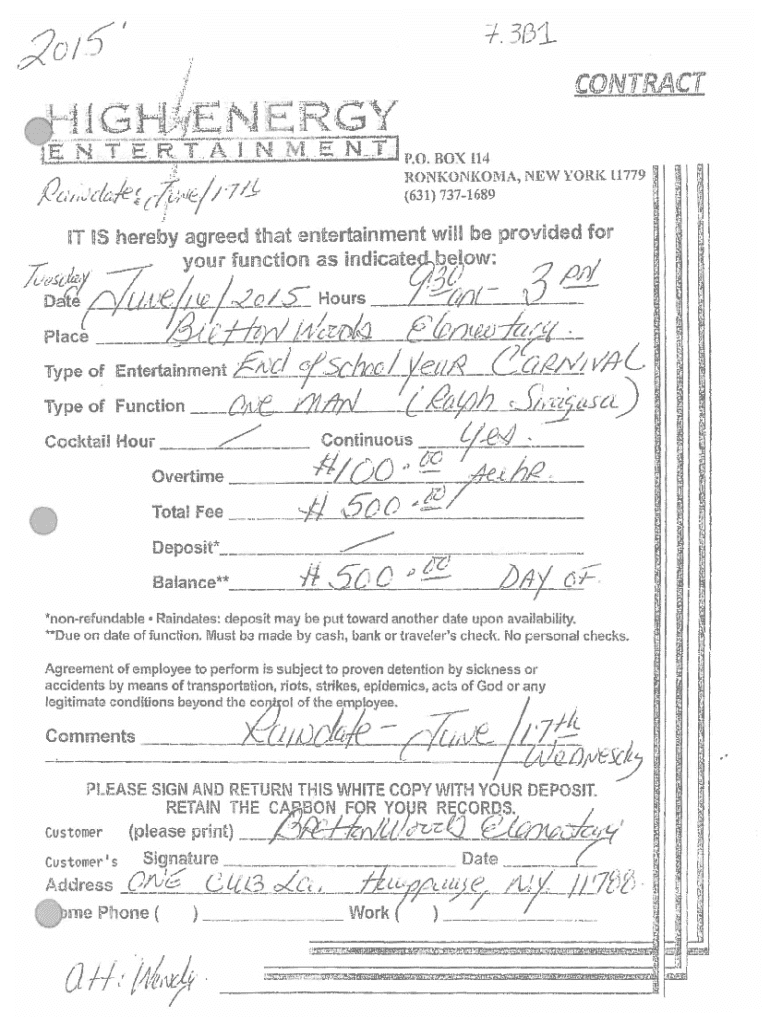 2015
7.3B1
CONTRACT
HIGH ENERGY
ENTERTAINMENT
P.O. BOX 114
RONKONKOMA, NEW YORK 11779
(631) 737-1689
Raindate: June/17th
IT IS hereby agreed that entertainment will be provided for
your function as indicated below:
Tuesday
Date June/16/2015 Hours 9:30 am - 3 PM
Place Bretton Woods Elementary.
Type of Entertainment End of School Year CARNIVAL
Type of Function ONE MAN (Ralph Siragusa)
Cocktail Hour / Continuous Yes.
Overtime #100.00 hr.
Total Fee # 500.00/
Deposit* /
Balance** # 500.00 DAY OF.
*non-refundable • Raindates: deposit may be put toward another date upon availability.
**Due on date of function. Must be made by cash, bank or traveler's check. No personal checks.
Agreement of employee to perform is subject to proven detention by sickness or
accidents by means of transportation, riots, strikes, epidemics, acts of God or any
legitimate conditions beyond the control of the employee.
Comments Raindate - June/17th
WEDNESday
PLEASE SIGN AND RETURN THIS WHITE COPY WITH YOUR DEPOSIT.
RETAIN THE CARBON FOR YOUR RECORDS.
Customer (please print) Bretton Woods Elementary
Customer's Signature Date
Address ONE CUB La. Hauppauge, N.Y. 11788.
ome Phone ( ) Work ( )
att: Wendy.